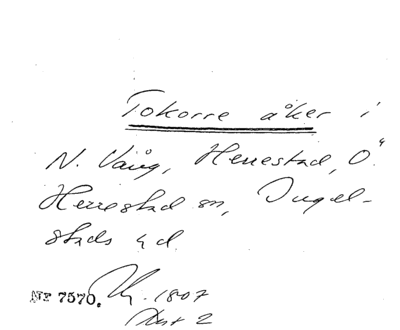 Tokorre åker i
N. Vång, Herrestad, Ö.
Herrestad sn, Ingel-
stads hd.
Nr 7570.
1807
Akt 2